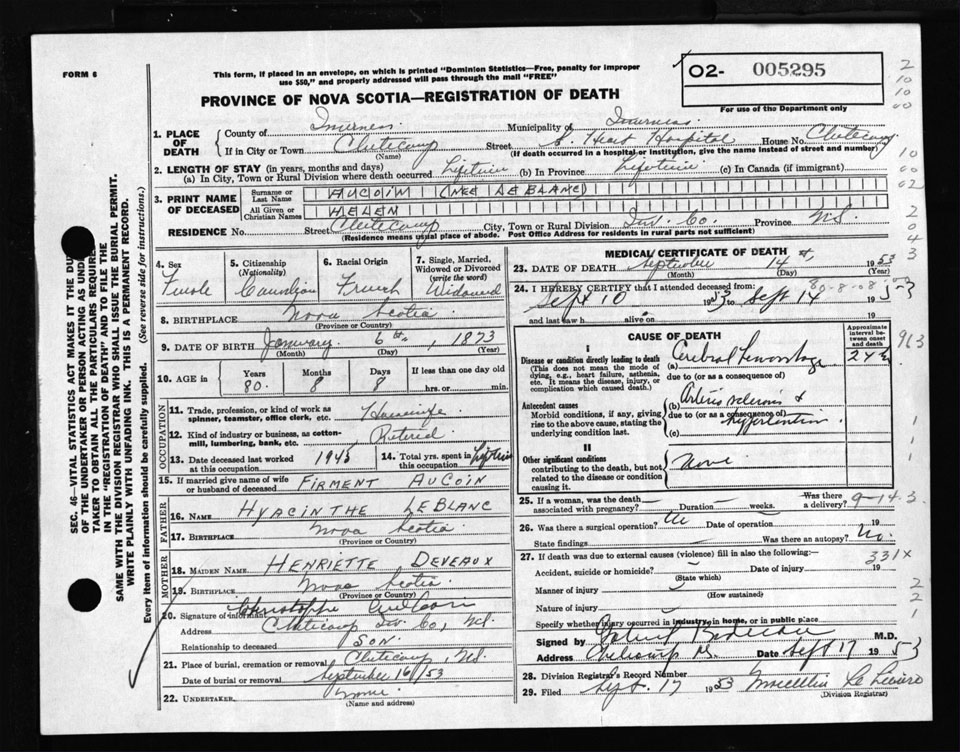 FORM 6
This form, if placed in an envelope, on which is printed "Dominion Statistics—Free, penalty for improper
use $50," and properly addressed will pass through the mail "FREE"
O2- 005295
For use of the Department only
PROVINCE OF NOVA SCOTIA—REGISTRATION OF DEATH
1. PLACE OF DEATH
County of Inverness Municipality of Inverness
If in City or Town Cheticamp Street S. Heart Hospital House No. Cheticamp
(Name) (If death occurred in a hospital or institution, give the name instead of street and number)
2. LENGTH OF STAY (in years, months and days)
(a) In City, Town or Rural Division where death occurred Lifetime (b) In Province Lifetime (c) In Canada (if immigrant)
3. PRINT NAME OF DECEASED
Surname or Last Name AUCOIN (NEE LE BLANC)
All Given or Christian Names HELEN
RESIDENCE No. Street Cheticamp City, Town or Rural Division Inv. Co. Province N.S.
(Residence means usual place of abode. Post Office Address for residents in rural parts not sufficient)
4. Sex Female
5. Citizenship (Nationality) Canadian
6. Racial Origin French
7. Single, Married, Widowed or Divorced (write the word) Widowed
8. BIRTHPLACE Nova Scotia
(Province or Country)
9. DATE OF BIRTH January 6th, 1873
(Month) (Day) (Year)
10. AGE in Years 80. Months 8 Days 8 If less than one day old hrs. or min.
OCCUPATION
11. Trade, profession, or kind of work as spinner, teamster, office clerk, etc. Housewife
12. Kind of industry or business, as cotton-mill, lumbering, bank, etc. Retired
13. Date deceased last worked at this occupation 1945
14. Total yrs. spent in this occupation Lifetime
15. If married give name of wife or husband of deceased FIRMENT AUCOIN
FATHER
16. NAME HYACINTHE LEBLANC
17. BIRTHPLACE Nova Scotia
(Province or Country)
MOTHER
18. MAIDEN NAME HENRIETTE DEVEAUX
19. BIRTHPLACE Nova Scotia
(Province or Country)
20. Signature of informant Christophe Aucoin
Address Cheticamp Inv. Co, N.S.
Relationship to deceased SON.
21. Place of burial, cremation or removal Cheticamp N.S.
Date of burial or removal September 16/53
22. UNDERTAKER None
(Name and address)
MEDICAL CERTIFICATE OF DEATH
23. DATE OF DEATH September 14th, 1953
(Month) (Day) (Year)
24. I HEREBY CERTIFY that I attended deceased from:
Sept 10 1953 to Sept 14 1953
and last saw h alive on
CAUSE OF DEATH
Approximate interval between onset and death
I
Disease or condition directly leading to death
(This does not mean the mode of dying, e.g., heart failure, asthenia, etc. It means the disease, injury, or complication which caused death.)
(a) Cerebral hemorrhage
due to (or as a consequence of)
Antecedent causes
Morbid conditions, if any, giving rise to the above cause, stating the underlying condition last.
(b) Arteriosclerosis &
due to (or as a consequence of) hypertension
(c)
II
Other significant conditions
contributing to the death, but not related to the disease or condition causing it.
None
25. If a woman, was the death associated with pregnancy? Duration weeks. Was there a delivery?
26. Was there a surgical operation? Date of operation 19
State findings Was there an autopsy? No.
27. If death was due to external causes (violence) fill in also the following:
Accident, suicide or homicide? Date of injury 19
(State which)
331X
Manner of injury
(How sustained)
Nature of injury
Specify whether injury occurred in industry, in home, or in public place
Signed by M.D.
Address Cheticamp N.S. Date Sept 17 1953
28. Division Registrar's Record Number
29. Filed Sept. 17 1953
(Division Registrar)
SEC. 46—VITAL STATISTICS ACT MAKES IT THE
OF THE UNDERTAKER OR PERSON ACTING AS
TAKER TO OBTAIN ALL THE PARTICULARS REQUIRED
IN THE "REGISTRATION OF DEATH" AND TO FILE THE
SAME WITH THE DIVISION REGISTRAR WHO SHALL ISSUE THE BURIAL PERMIT.
WRITE PLAINLY WITH UNFADING INK. THIS IS A PERMANENT RECORD.
Every item of information should be carefully supplied. (See reverse side for instructions.)